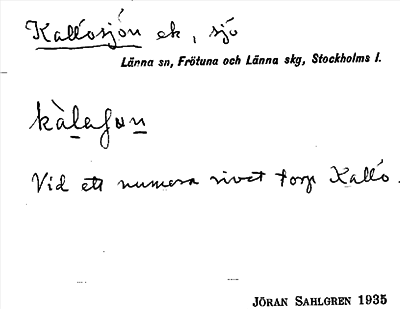 Kallösjön ek, sjö
Länna sn, Frötuna och Länna skg, Stockholms l.
kàlaſɯn
Vid ett numera rivet torp Kallö.
JÖRAN SAHLGREN 1935